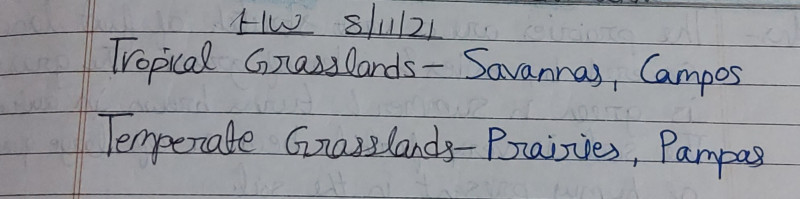 H/W 8/11/21
Tropical Grasslands - Savannas, Campos
Temperate Grasslands - Prairies, Pampas